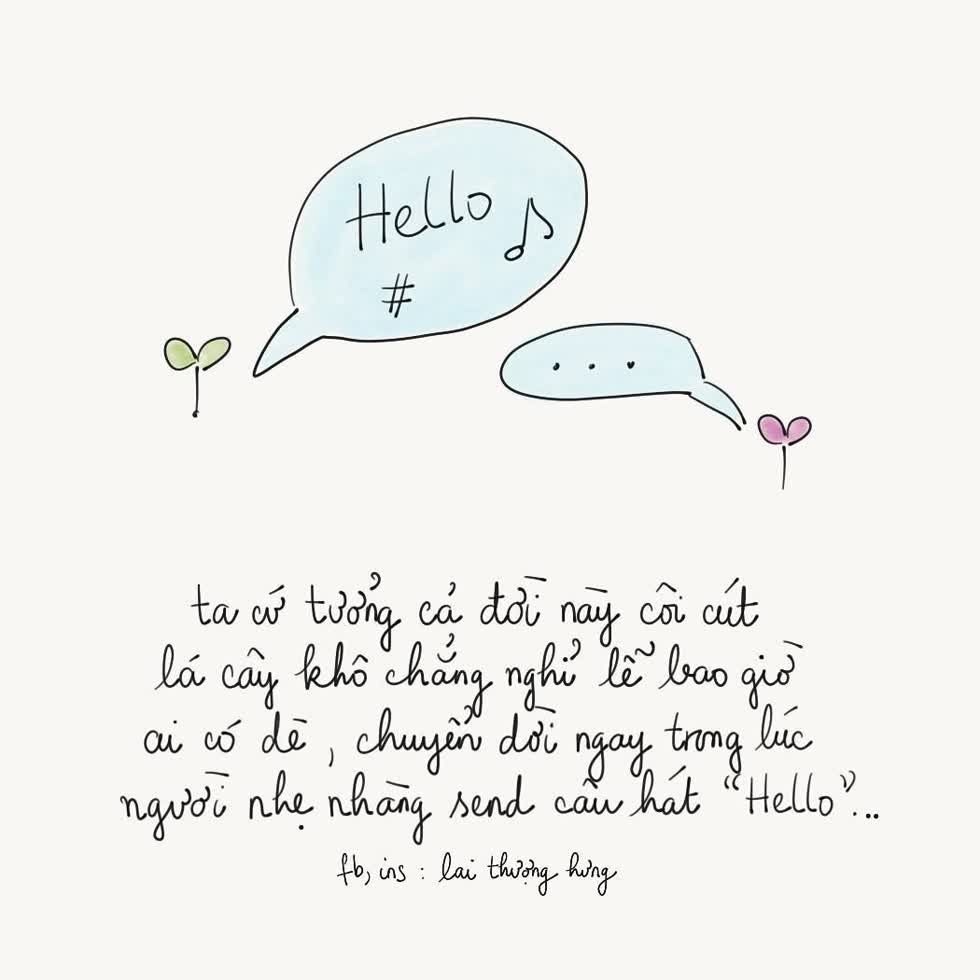 Hello
#
...
ta cứ tưởng cả đời này côi cút
lá cây khô chẳng nghỉ lễ bao giờ
ai có dè, chuyển dời ngay trong lúc
người nhẹ nhàng send câu hát "Hello"...
fb, ins : lai thượng hưng